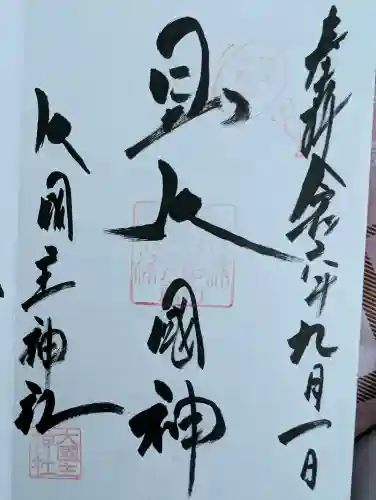 奉拝 令和六年九月一日
大國神
大國主神社
大國主神社